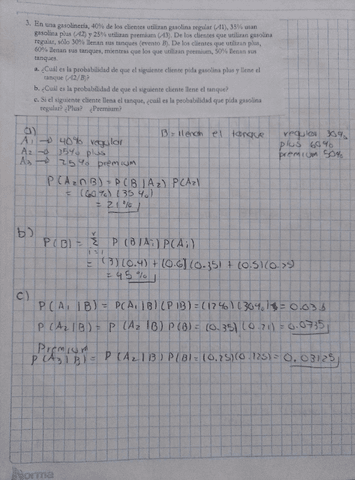 3. En una gasolinería, 40% de los clientes utilizan gasolina regular (A1), 35% usan
gasolina plus (A2) y 25% utilizan premium (A3). De los clientes que utilizan gasolina
regular, sólo 30% llenan sus tanques (evento B). De los clientes que utilizan plus,
60% llenan sus tanques, mientras que los que utilizan premium, 50% llenan sus
tanques.
a. ¿Cuál es la probabilidad de que el siguiente cliente pida gasolina plus y llene el
tanque (A2/B)?
b. ¿Cuál es la probabilidad de que el siguiente cliente llene el tanque?
c. Si el siguiente cliente llena el tanque, ¿cuál es la probabilidad que pida gasolina
regular? ¿Plus? ¿Premium?
a)
A1 → 40% regular
A2 → 35% plus
A3 → 25% premium
B = llenan el tanque
regular 30%
plus 60%
premium 50%
P(A2∩B) = P(B|A2) P(A2)
= (60%)(35%)
= 21%
b)
P(B) = Σ P(B|Ai) P(Ai)
= (.3)(0.4) + (0.6)(0.35) + (0.5)(0.25)
= 45%
c)
P(A1|B) = P(A1|B)(P|B) = (12%)(30%) = 0.036
P(A2|B) = P(A2|B) P(B) = (0.35)(0.21) = 0.0735
Premium
P(A3|B) = P(A2|B) P(B) = (0,25)(0.125) = 0,03125
Norma